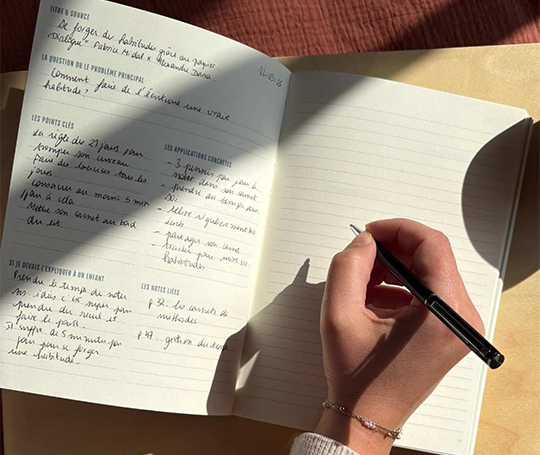 TITRE & SOURCE
De forger des habitudes grâce au papier
"Dialogue" Fabrice Midal x Alexandre Dana.
LA QUESTION OU LE PROBLÈME PRINCIPAL
Comment faire de l'écriture une vraie
habitude?
LES POINTS CLÉS
La règle des 21 jours pour
tromper son cerveau
Faire des tous les
jours
Consacrer au moins 5 min
/jour à cela
Mettre son carnet au bord
du lit.
LES APPLICATIONS CONCRÈTES
- 3 pensées par jour à
noter dans son carnet
- prendre du temps pour
soi
- relire régulièrement les
écrits
- partager son carnet
- tracker pour suivre ses
habitudes
SI JE DEVAIS L'EXPLIQUER À UN ENFANT
Prendre le temps de noter
ses idées c'est super pour
prendre du recul et
faire le point.
Il suffit de 5 minutes par
jour pour se forger
une habitude.
LES NOTES LIÉES
p 32: les carnets de
méthodes
p 47 gestion du temps